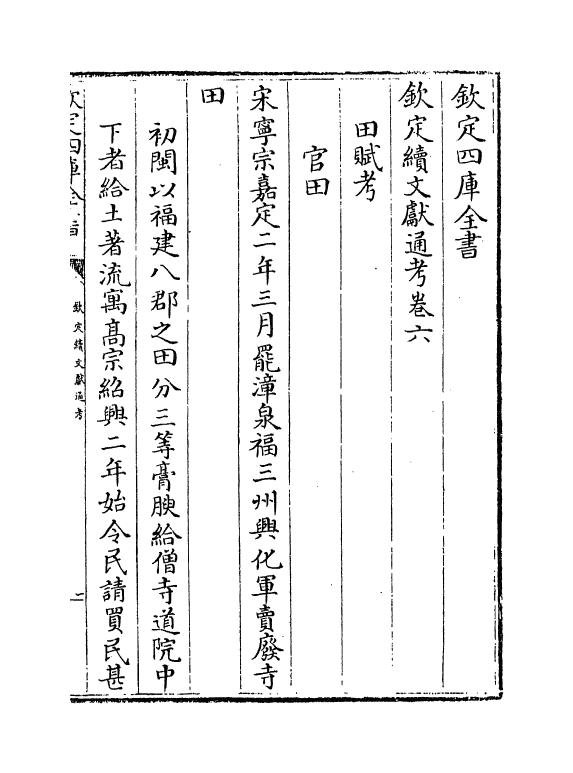 欽定四庫全書
欽定續文獻通考卷六
田賦考
官田
宋寧宗嘉定二年三月罷漳泉福三州興化軍賣廢寺
田
初閩以福建八郡之田分三等膏腴給僧寺道院中
下者給土著流寓高宗紹興二年始令民請買民甚
欽定四庫全書
欽定續文獻通考